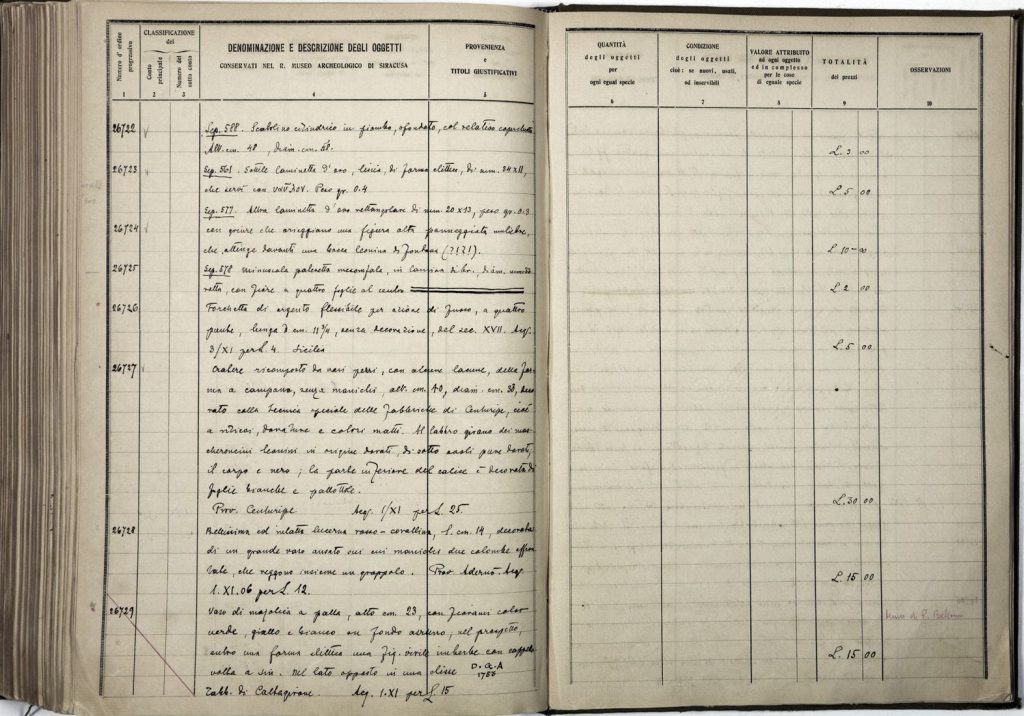 Numero d' ordine progressivo
CLASSIFICAZIONE del
Conto principale
Numero del sotto conto
DENOMINAZIONE E DESCRIZIONE DEGLI OGGETTI
CONSERVATI NEL R. MUSEO ARCHEOLOGICO DI SIRACUSA
PROVENIENZA
e
TITOLI GIUSTIFICATIVI
1 2 3 4 5
26722 Sep. 588. Scatolino cilindrico in piombo, sfondato, col relativo coperchietto
Alt. cm. 48, diam. cm. 58.
26723 Sep. 561. Sottile laminetta d'oro, liscia, di forma elittica, di mm. 24 x 11,
che servì con Peso gr. 0.4
Sep. 577. Altra laminetta d'oro rettangolare di mm. 20 x 13, peso gr. 0.3
26724 con che arieggiano una figura alta panneggiata muliebre,
che attinge davanti una bocca leonina di fontana (?!?!).
26725 Sep. 578 Minuscola pateretta mesomfale, in lamina di bo., diam.
retta, con fiore a quattro foglie al centro
26726 Forchetta di argento flessibile per azione di fuoco, a quattro
punte, lunga cm. 11 3/4, senza decorazione, del sec. XVII. Acq.
3/XI per L. 4. Sicilia
26727 Cratere ricomposto da vari pezzi, con alcune lacune, della for-
ma a campana, senza manichi, alt. cm. 40, diam. cm. 38, deco
rato colla tecnica speciale delle fabbriche di Centuripe, cioè
a rilievi, dorature e colori matti. Al labbro girano dei mas-
cheroncini leonini in origine dorati, di sotto ovoli pure dorati,
il corpo è nero; la parte inferiore del calice è decorata di
foglie bianche e pallottole.
Prov. Centuripe Acq. 1/XI per L. 25.
26728 Bellissima ed intatta lucerna rosso-corallina, l. cm. 14, decorata
di un grande vaso ansato sui cui manichi due colombe affron
tate, che reggono insieme un grappolo. Prov. Adernò. Acq.
1. XI. 06 per L. 12.
26729 Vaso di majolica a palla, alto cm. 23, con fiorami color
verde, giallo e bianco su fondo azzurro, nel prospetto,
entro una forma elittica una fig. virile imberbe con cappello
volta a sin. Nel lato opposto in una elisse D.G.A
1755
Fabb. di Caltagirone Acq. 1.XI per L. 15
QUANTITÀ
degli oggetti
per
ogni egual specie
CONDIZIONE
degli oggetti
cioè: se nuovi, usati,
od inservibili
VALORE ATTRIBUITO
ad ogni oggetto
ed in complesso
per le cose
di eguale specie
TOTALITÀ
dei prezzi
OSSERVAZIONI
6 7 8 9 10
L. 3 00
L. 5 00
L. 10 - 00
L. 2 00
L. 5 00
L. 30 00
L. 15 00
L. 15 00